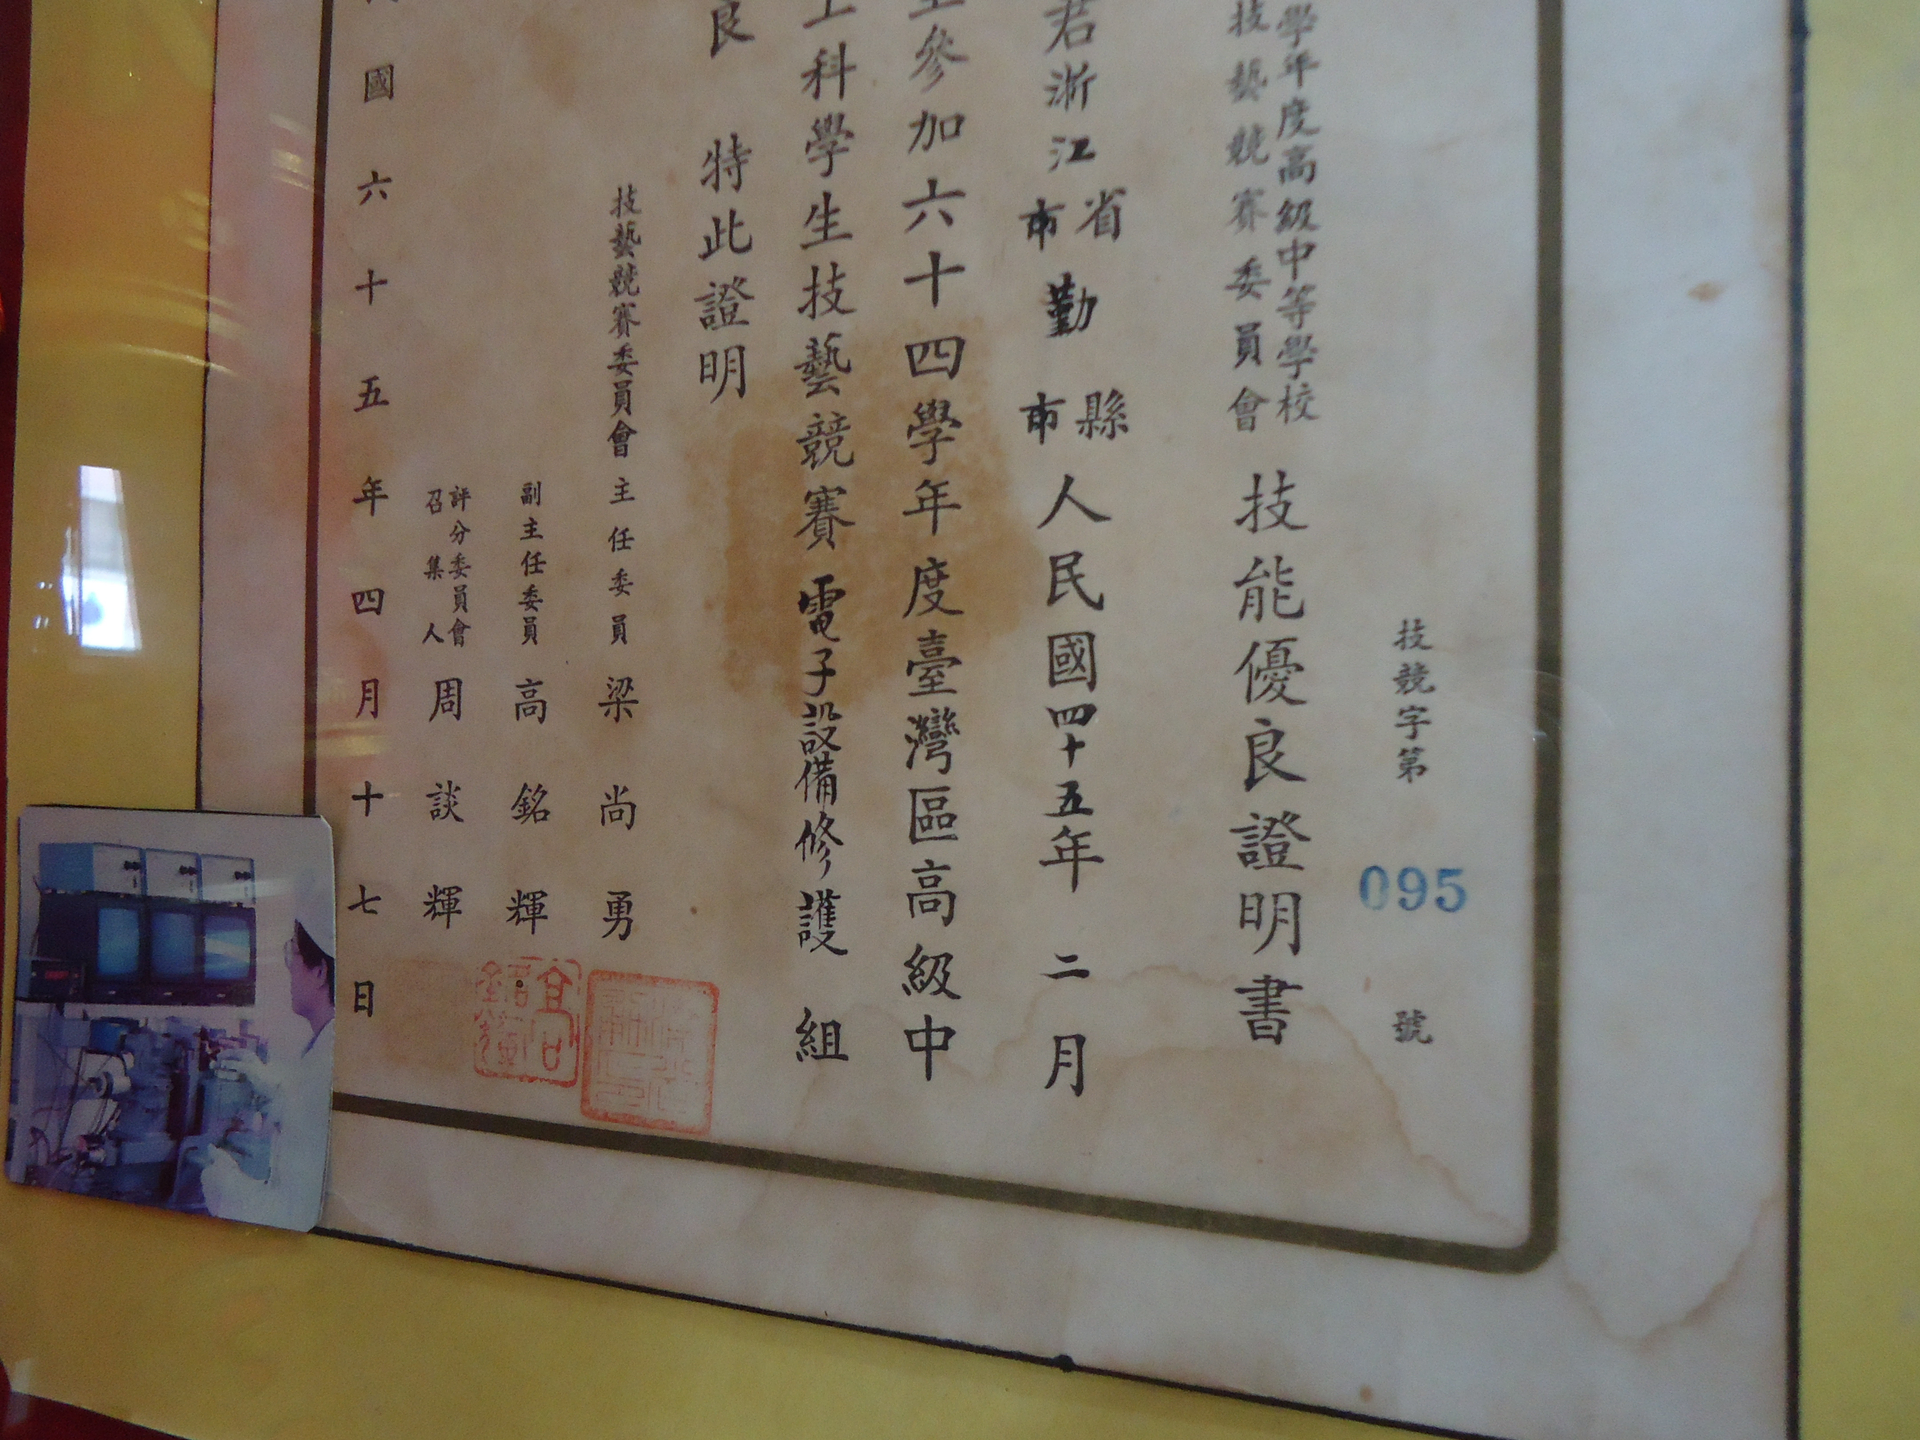 技競字第 095 號
學年度高級中等學校
技藝競賽委員會
技能優良證明書
君浙江省市勤縣市人民國四十五年二月
參加六十四學年度臺灣區高級中
工科學生技藝競賽電子設備修護組
良 特此證明
技藝競賽委員會主任委員 梁尚勇
副主任委員 高銘輝
評分委員會
召集人 周談輝
國六十五年四月十七日